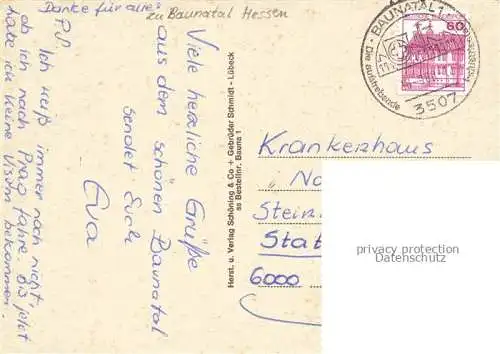 Danke für alles
zu Baunatal Hessen
Viele herzliche Grüße
aus dem schönen Baunatal
sendet Euch
Eva
PS
Ich weiß immer noch nicht,
ob ich nach Prag fahre. Bis jetzt
habe ich keine Visum bekommen.
Herst. u. Verlag Schöning & Co + Gebrüder Schmidt - Lübeck
ss Bestellnr. Baunatal 1
BAUNATAL 1
60
Die aufstrebende
3507
Krankenhaus
Stat
6000
privacy protection
Ansichtskarten-Center.de